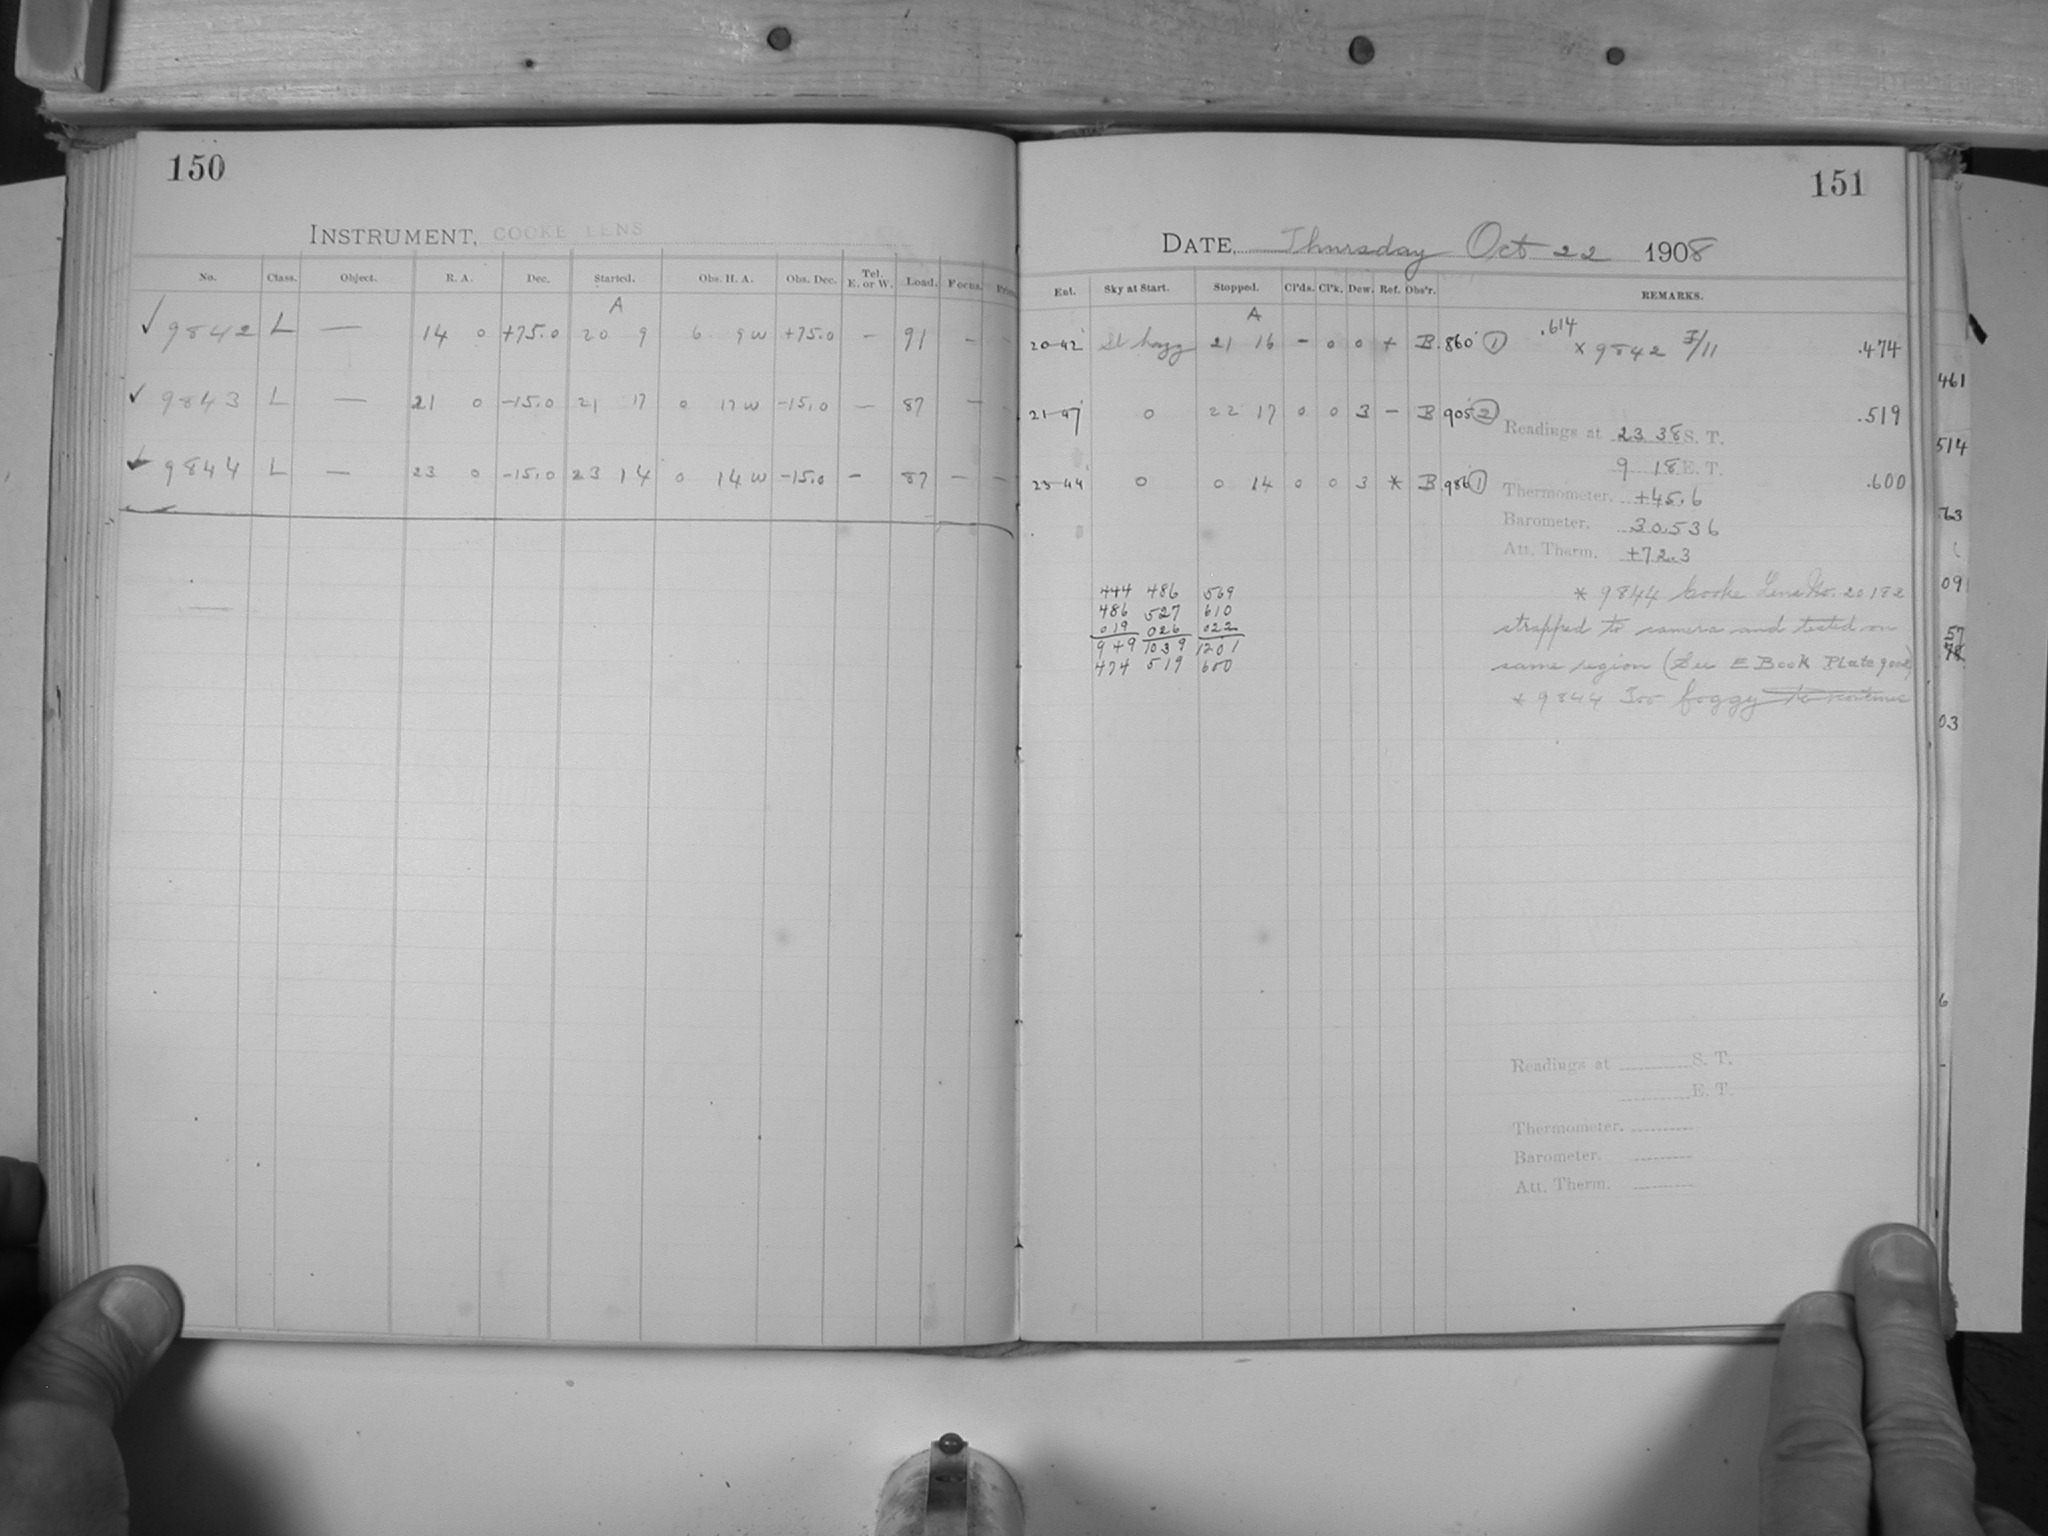 150
INSTRUMENT, COOKE LENS
No. Class. Object. R. A. Dec. Started. Obs. H. A. Obs. Dec. Tel. E. or W. Load. Focus.
A
✓ 9842 L — 14 0 +75.0 20 9 6 9 W +75.0 — 91 — —
✓ 9843 L — 21 0 -15.0 21 17 0 17 W -15.0 — 87 — —
✓ 9844 L — 23 0 -15.0 23 14 0 14 W -15.0 — 87 — —
151
DATE, Thursday Oct 22 1908
Ent. Sky at Start. Stopped. Cl'ds. Cl'k. Dew. Ref. Obs'r. REMARKS.
A
20-42 Sl hazy 21 16 — 0 0 + B .860 ① .614 × 9842 I/11 .474
21-47 0 22 17 0 0 3 — B 905 ② .519
Readings at 23 38 S. T.
9 18 E. T.
23-44 0 0 14 0 0 3 * B 986 ① .600
Thermometer. +45.6
Barometer. 30.536
Att. Therm. +72.3
444 486 569
486 527 610
019 026 022
949 1039 1201
474 519 600
* 9844 Cooke Lens No. 20182
strapped to camera and tested on
same region (See E Book Plate
* 9844 Too foggy to continue
Readings at S. T.
E. T.
Thermometer.
Barometer.
Att. Therm.
461
514
63
09
57
78
03
6